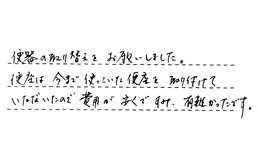 便器の取り替えをお願いしました。
便座は今まで使っていた便座を取り付けて
いただいたので費用が安くですみ、有難かったです。